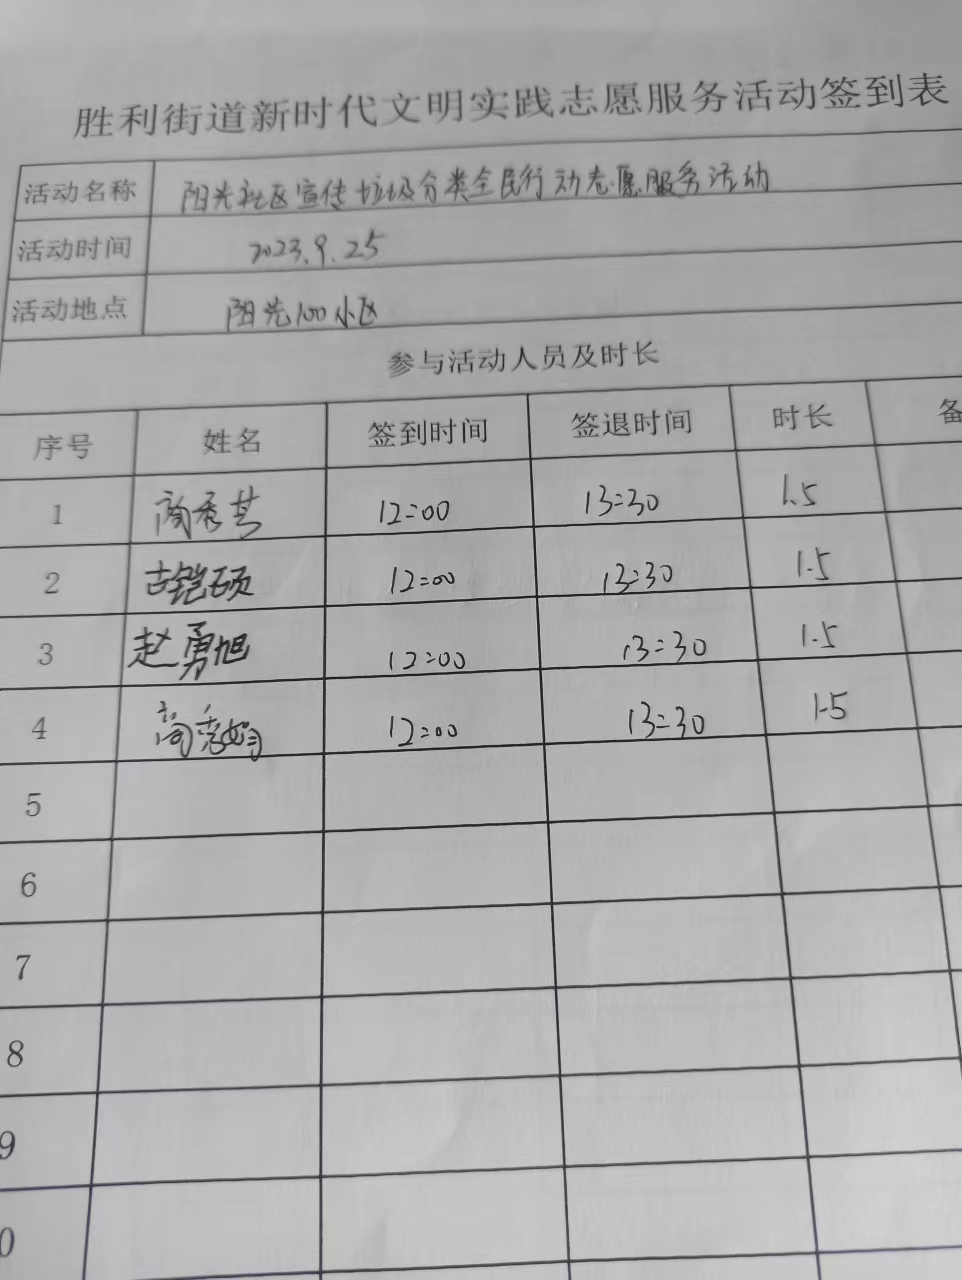 胜利街道新时代文明实践志愿服务活动签到表
活动名称 阳光社区宣传垃圾分类全民行动志愿服务活动
活动时间 2023.9.25
活动地点 阳光100小区
参与活动人员及时长
序号 姓名 签到时间 签退时间 时长 备
1 12:00 13:30 1.5
2 古铠硕 12:00 13:30 1.5
3 赵勇旭 12:00 13:30 1.5
4 12:00 13:30 1.5
5
6
7
8
9
0